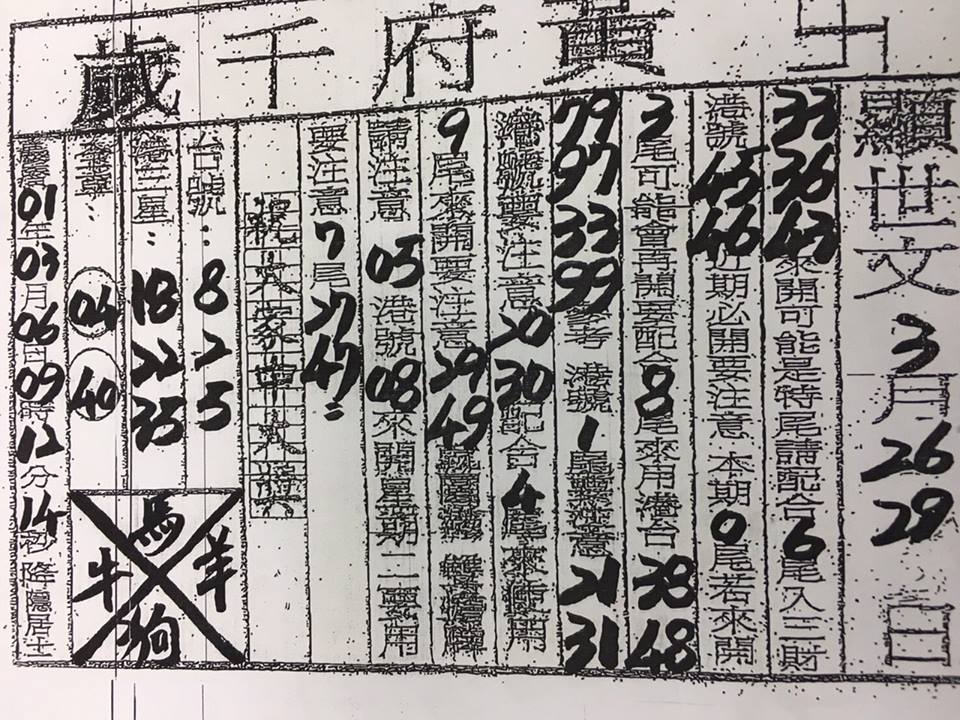 黃府千歲
顯世文3月26 29日
33 36 43來開可能是特尾請配合6尾入三財
港號45 46近期必開要注意 本期0尾若來開
3尾可能會再開要配合8尾來用港台38 48
79 97 33 99參考 港號1尾要注意21 31
港號要注意20 30配合4尾來用
9尾來開要注意29 49
請注意05港號08來開星期二要用
要注意7尾27 47
祝大家中大獎
台號:8 2 5
港三星:18 22 35
04 40
01年03月06日09時12分14秒降隱居
馬
牛 羊
狗